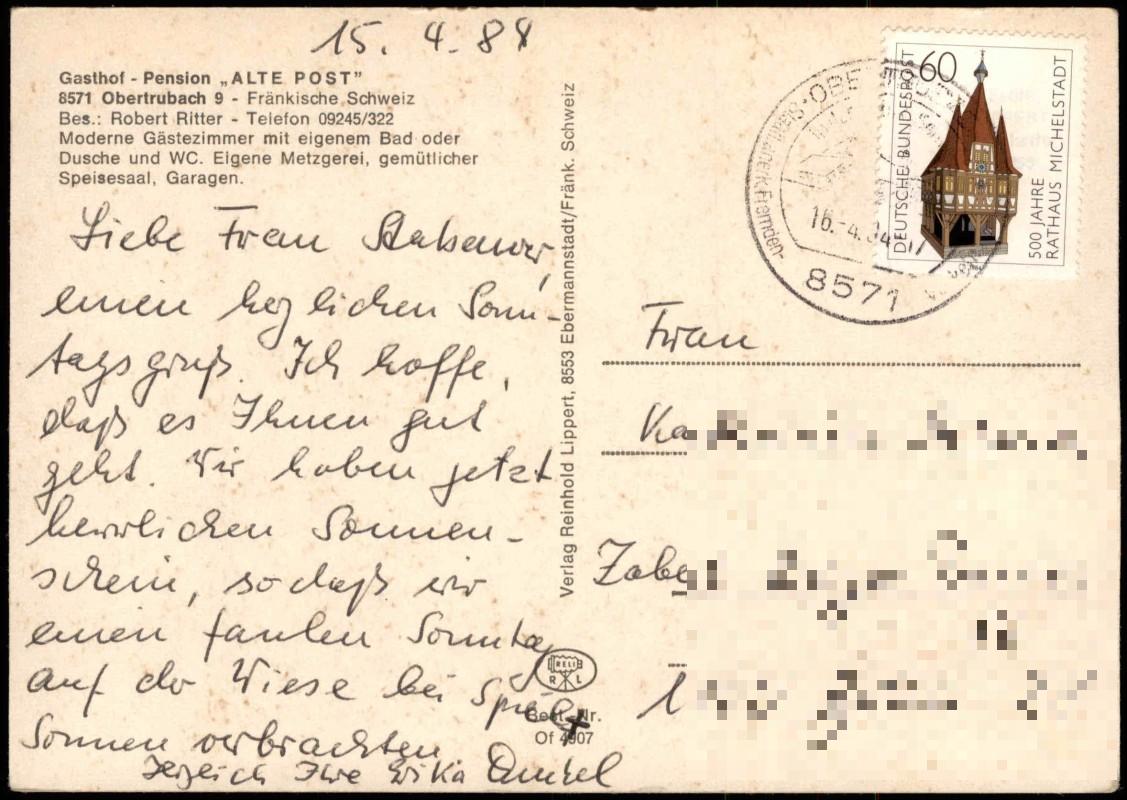 15. 4. 84
Gasthof - Pension „ALTE POST”
8571 Obertrubach 9 - Fränkische Schweiz
Bes.: Robert Ritter - Telefon 09245/322
Moderne Gästezimmer mit eigenem Bad oder
Dusche und WC. Eigene Metzgerei, gemütlicher
Speisesaal, Garagen.
Liebe Frau
einen herzlichen Sonn-
tagsgruß. Ich hoffe,
daß es Ihnen gut
geht. Wir haben jetzt
herrlichen Sonnen-
schein, so daß wir
einen faulen Sonntag
auf der Wiese bei Spiel +
Sonnen verbrachten
Herzlich Ihre Erika
Verlag Reinhold Lippert, 8553 Ebermannstadt/Fränk. Schweiz
RELI
R L
Best.-Nr.
Of 4907
60
DEUTSCHE BUNDESPOST
500 JAHRE
RATHAUS MICHELSTADT
16.-4.84
8571
Frau